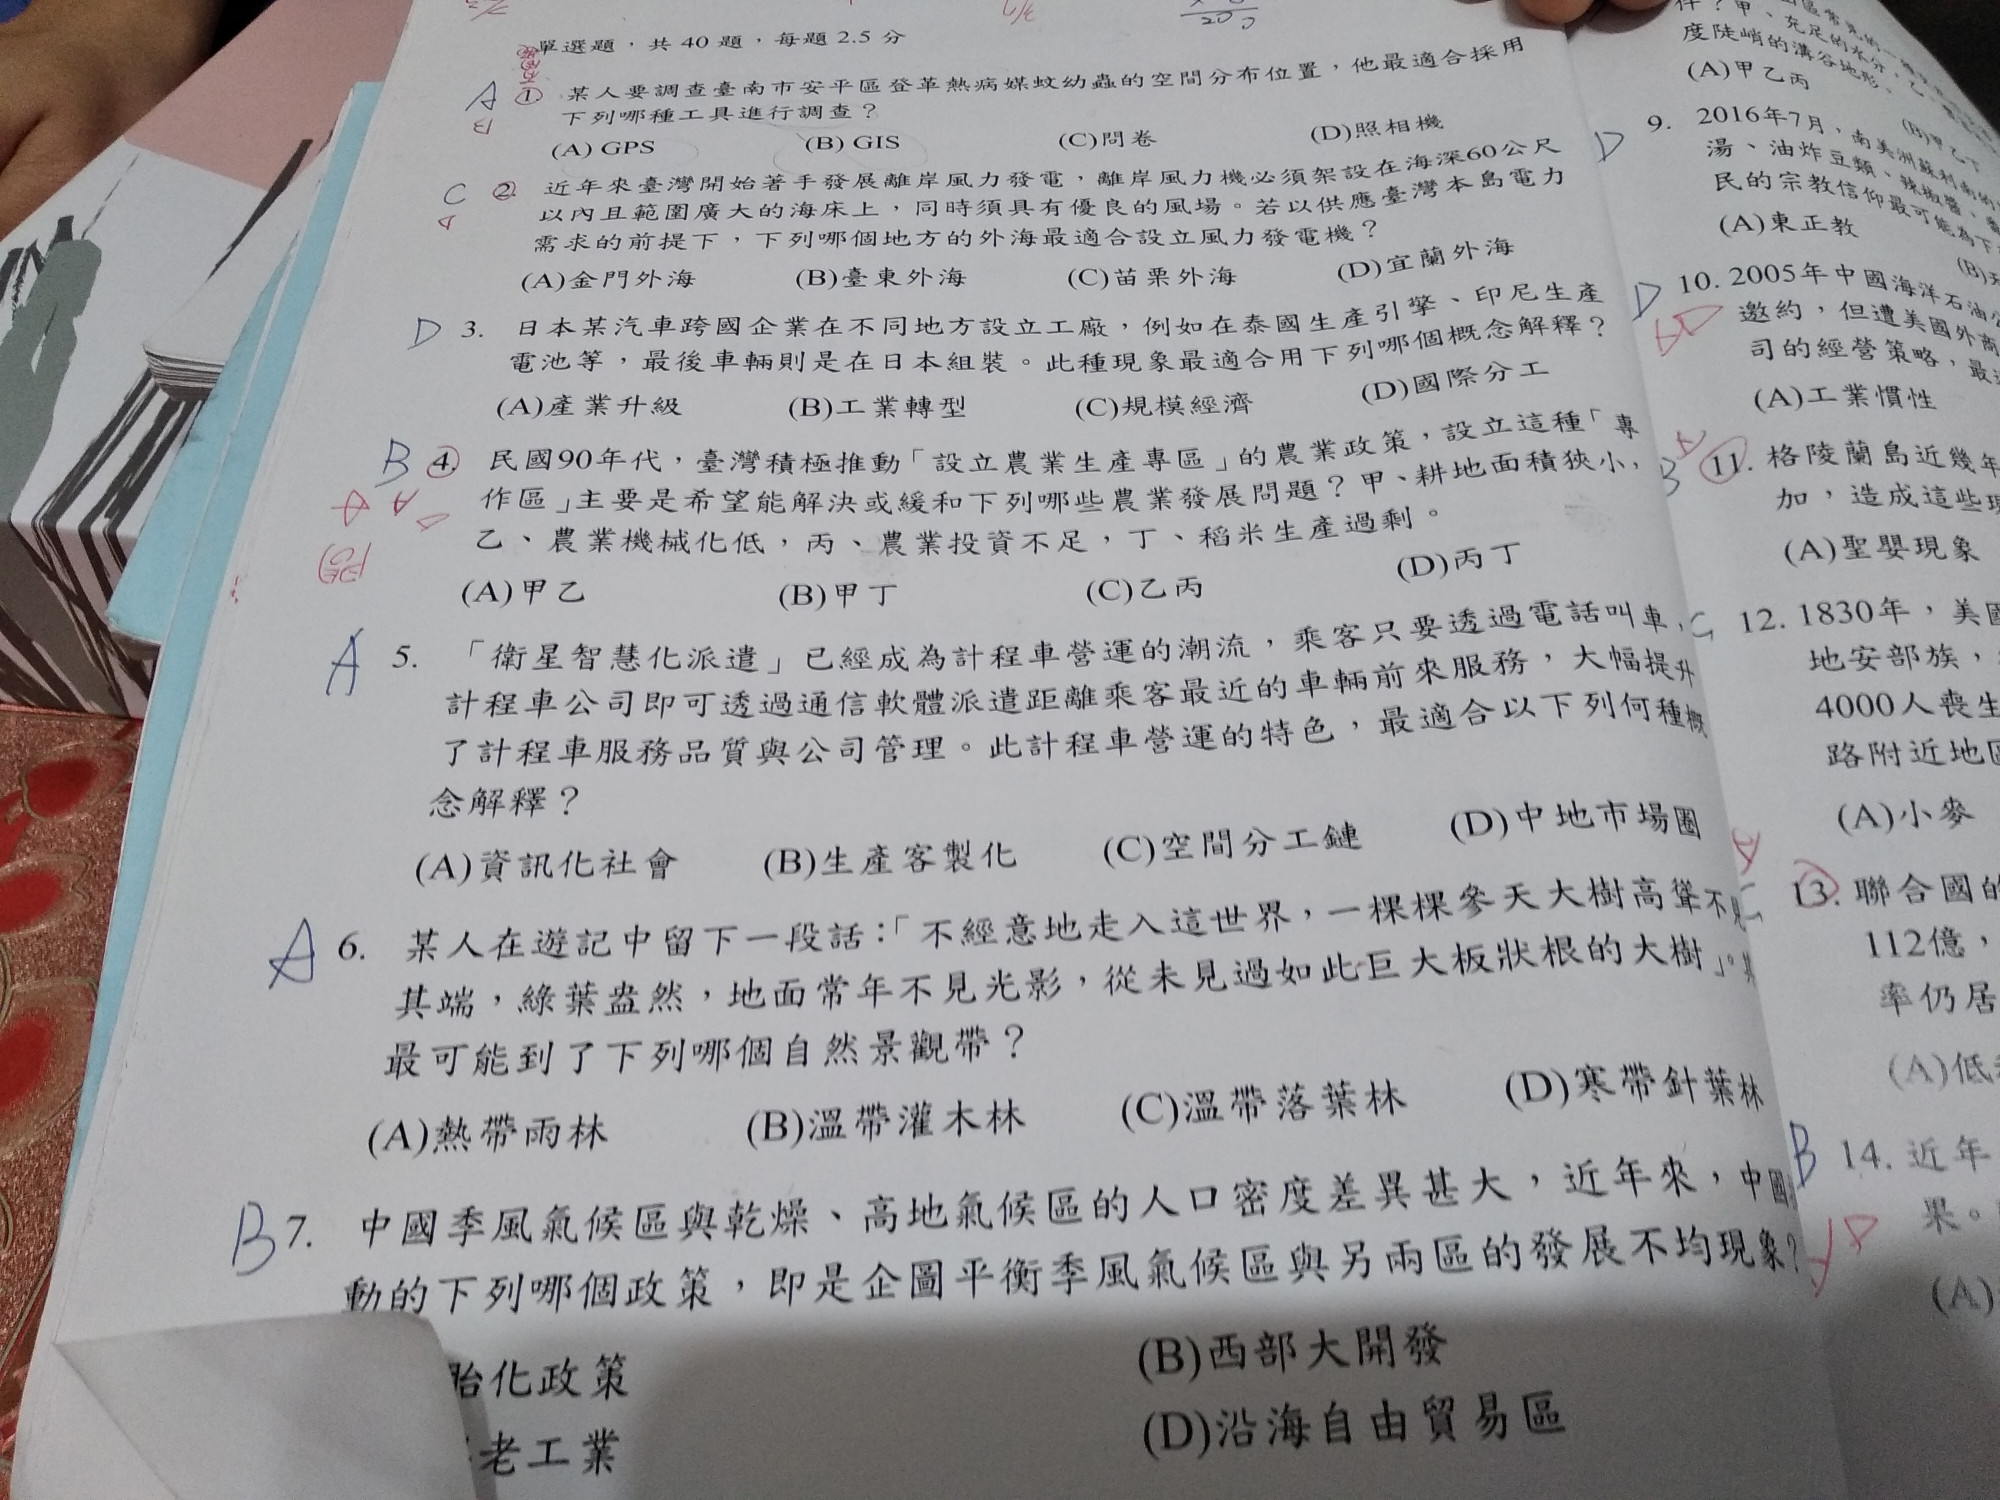 單選題，共 40 題，每題 2.5 分
A ① 某人要調查臺南市安平區登革熱病媒蚊幼蟲的空間分布位置，他最適合採用
下列哪種工具進行調查？
(A) GPS (B) GIS (C)問卷 (D)照相機
C ② 近年來臺灣開始著手發展離岸風力發電，離岸風力機必須架設在海深60公尺
以內且範圍廣大的海床上，同時須具有優良的風場。若以供應臺灣本島電力
需求的前提下，下列哪個地方的外海最適合設立風力發電機？
(A)金門外海 (B)臺東外海 (C)苗栗外海 (D)宜蘭外海
D 3. 日本某汽車跨國企業在不同地方設立工廠，例如在泰國生產引擎、印尼生產
電池等，最後車輛則是在日本組裝。此種現象最適合用下列哪個概念解釋？
(A)產業升級 (B)工業轉型 (C)規模經濟 (D)國際分工
B ④ 民國90年代，臺灣積極推動「設立農業生產專區」的農業政策，設立這種「專
作區」主要是希望能解決或緩和下列哪些農業發展問題？甲、耕地面積狹小，
乙、農業機械化低，丙、農業投資不足，丁、稻米生產過剩。
(A)甲乙 (B)甲丁 (C)乙丙 (D)丙丁
A 5. 「衛星智慧化派遣」已經成為計程車營運的潮流，乘客只要透過電話叫車，
計程車公司即可透過通信軟體派遣距離乘客最近的車輛前來服務，大幅提升
了計程車服務品質與公司管理。此計程車營運的特色，最適合以下列何種概
念解釋？
(A)資訊化社會 (B)生產客製化 (C)空間分工鏈 (D)中地市場圈
A 6. 某人在遊記中留下一段話：「不經意地走入這世界，一棵棵參天大樹高聳不見
其端，綠葉盎然，地面常年不見光影，從未見過如此巨大板狀根的大樹」。其
最可能到了下列哪個自然景觀帶？
(A)熱帶雨林 (B)溫帶灌木林 (C)溫帶落葉林 (D)寒帶針葉林
B 7. 中國季風氣候區與乾燥、高地氣候區的人口密度差異甚大，近年來，中國
動的下列哪個政策，即是企圖平衡季風氣候區與另兩區的發展不均現象？
胎化政策 (B)西部大開發
老工業 (D)沿海自由貿易區
度陡峭的溝谷地形、
(A)甲乙丙 (B)甲乙丁
D 9. 2016年7月，南美洲蘇利南的
湯、油炸豆類、辣椒醬、
民的宗教信仰最可能為下
(A)東正教
D 10. 2005年中國海洋石油公
邀約，但遭美國外商
司的經營策略，最
(A)工業慣性
B ⑪. 格陵蘭島近幾年
加，造成這些現
(A)聖嬰現象
C 12. 1830年，美國
地安部族，
4000人喪生
路附近地區
(A)小麥
13. 聯合國的
112億，
率仍居
(A)低
B 14. 近年
果。
(A)